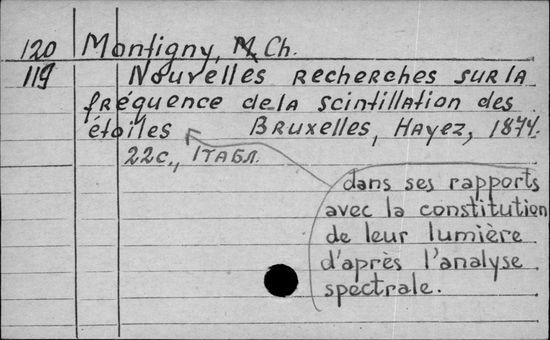 120 Montigny, M. Ch.
119 Nouvelles recherches sur la
fréquence de la scintillation des
étoiles Bruxelles, Hayez, 1874.
22с., 1 табл.
dans ses rapports
avec la constitution
de leur lumière
d'après l'analyse
spectrale.